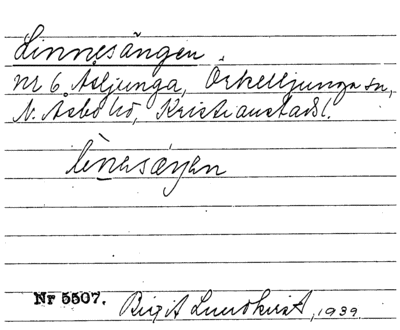 Linnesängen
nr 6 Åsljunga, Örkelljunga sn,
N. Åsbo hd, Kristianstads l.
Nr 5507. Birgit Lundkvist, 1939